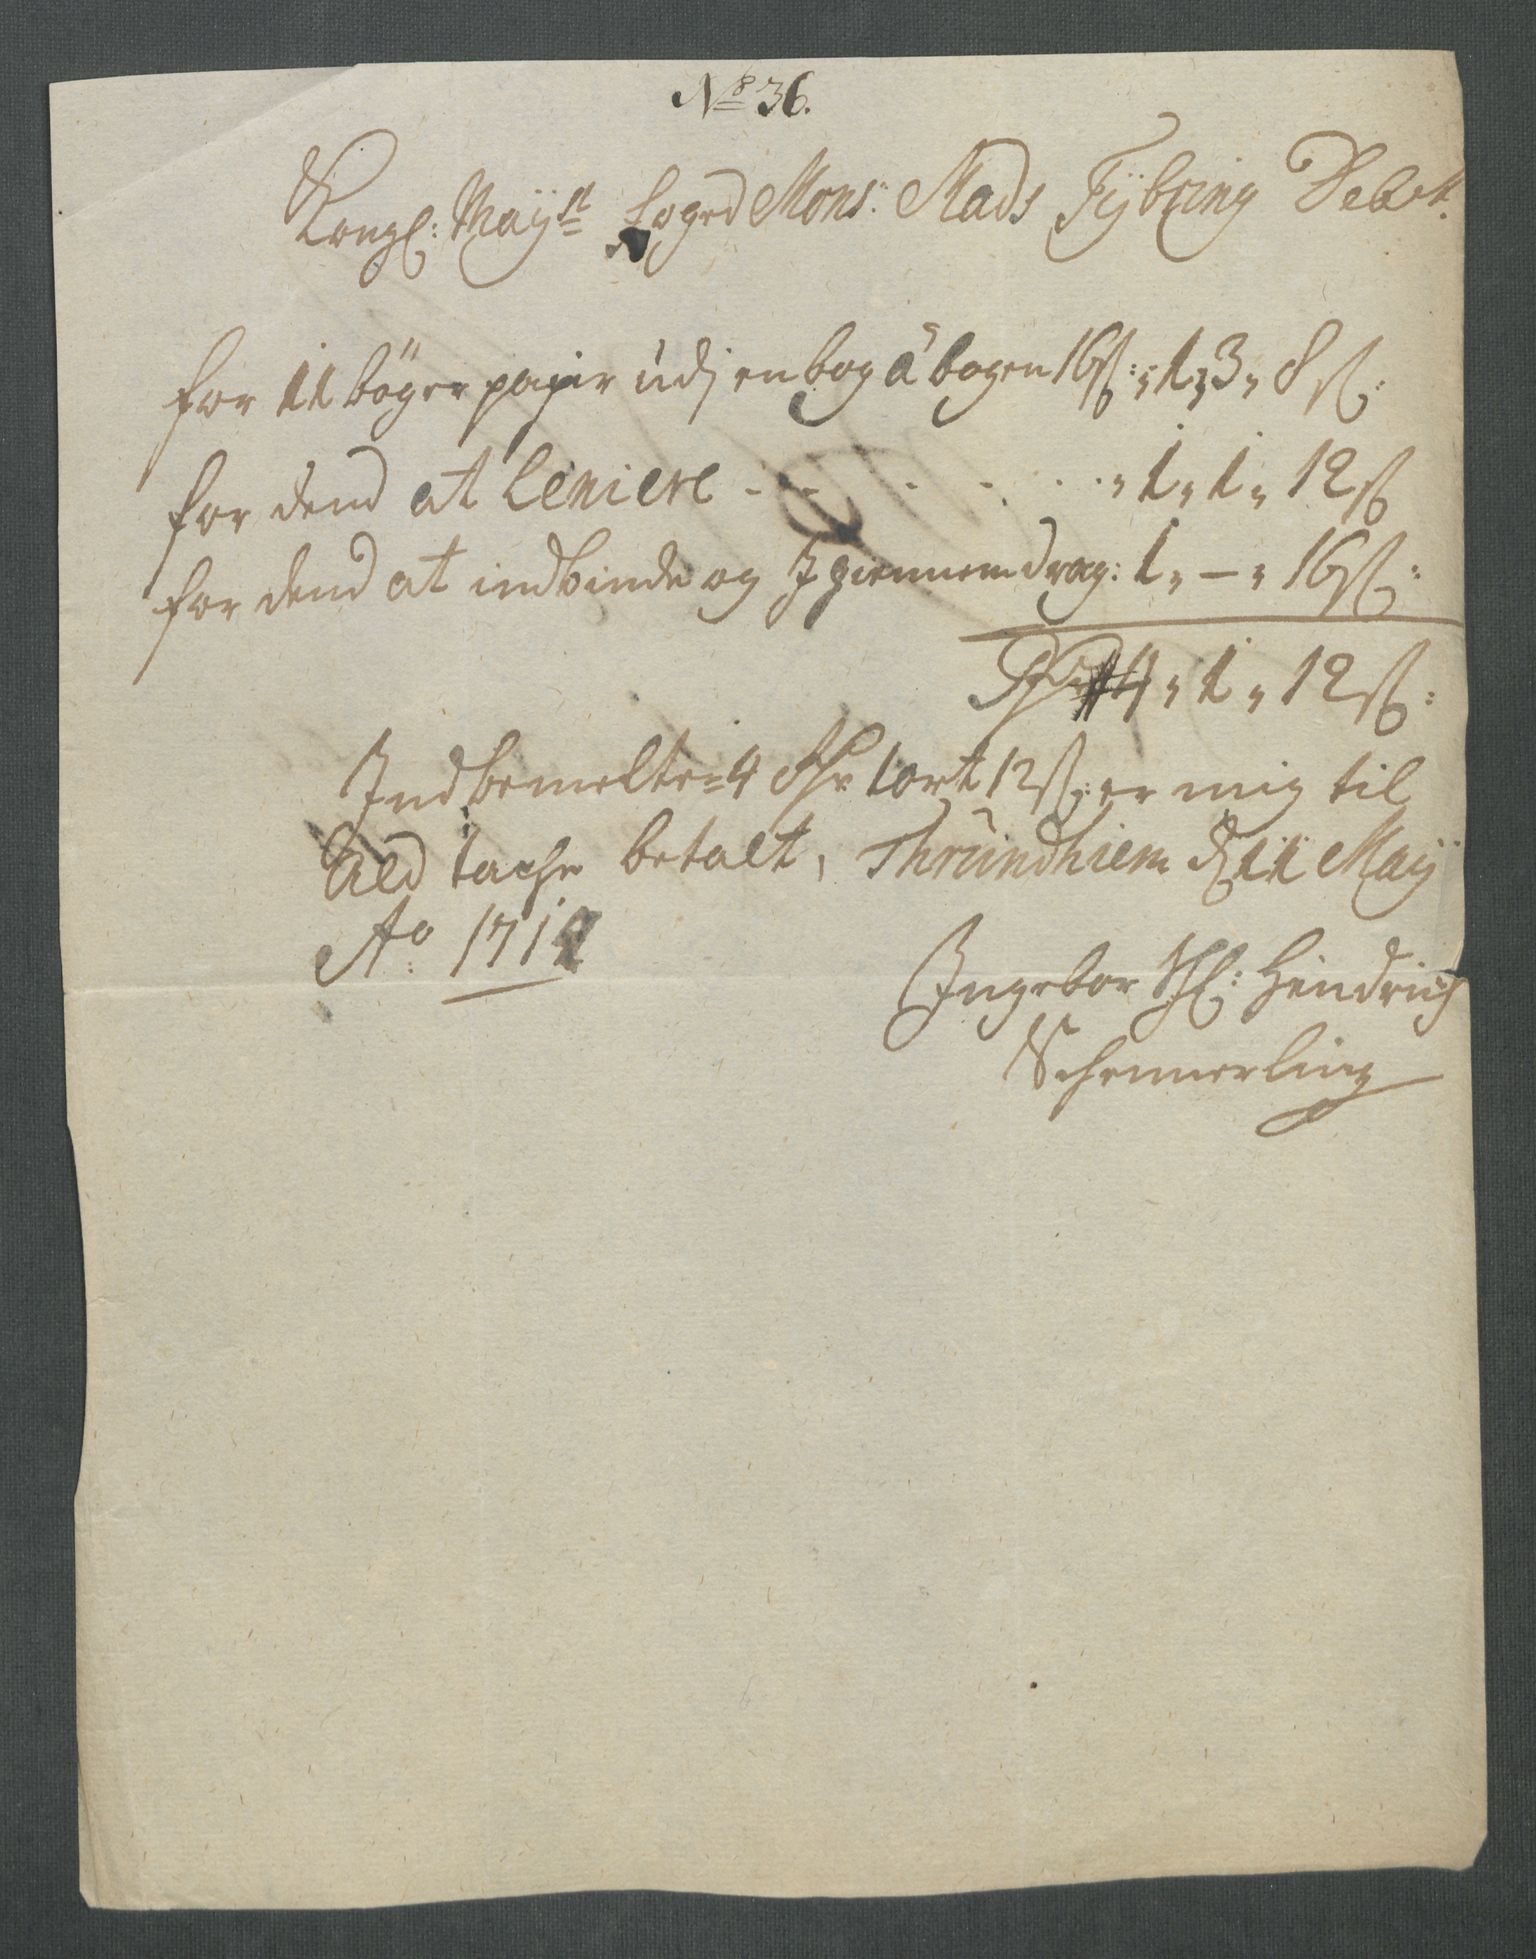 No 36.
Kongl: Mayst foged Mons: Mads Fÿbring Debet.
for 11 bøger papir udj en bog â bogen 16ß: 1, 3, 8ß:
for dend at leniere - - - - - - 1, 1, 12ß
for dend at indbinde og Igiennemdrag: 1, – , 16ß:
4, 1, 12ß:
Indbemelte 4 Rdr 1 ort 12ß: er mig til
tache betalt, Thrundhiem d 11 Maÿ
Ao 171
Ingebor Sl: Hindrich
Schmerling